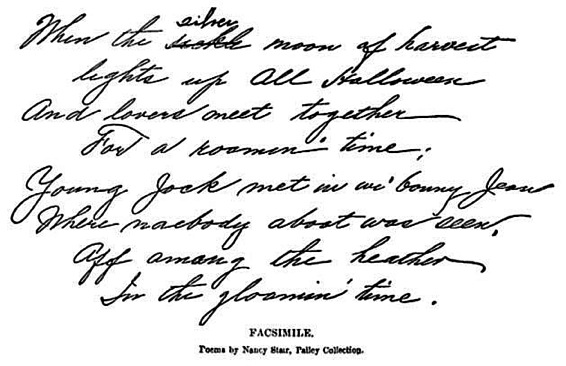 silver
When the sickle moon of harvest
lights up All Halloween
And lovers meet together
For a roamin' time;
Young Jock met in wi' bonny Jean
Where naebody aboot was seen,
Aff among the heather
In the gloamin' time.
FACSIMILE.
Poems by Nancy Stair, Pailey Collection.